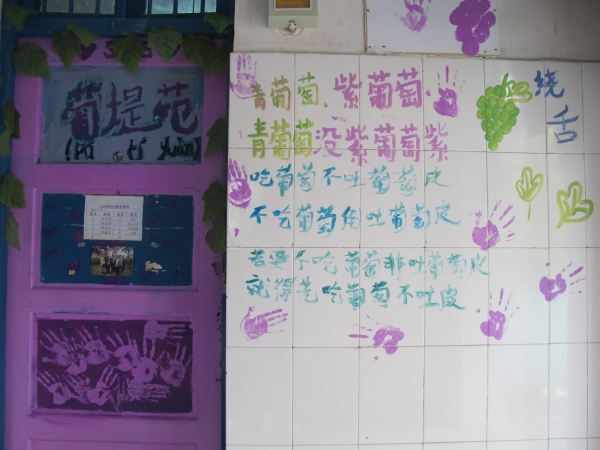 葡堤苑
(pú tí yuàn)
青葡萄、紫葡萄、
青葡萄没紫葡萄紫
吃葡萄不吐葡萄皮
不吃葡萄倒吐葡萄皮
若要不吃葡萄非吐葡萄皮
就得先吃葡萄不吐皮
绕舌